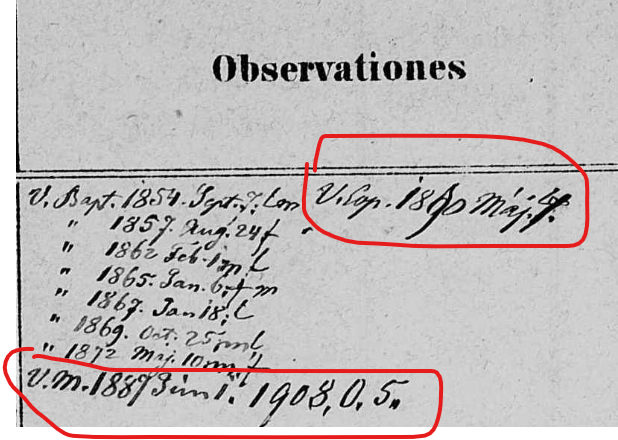 Observationes
V. Bapt. 1854. Sept. 7. V. Cop. 18 Máj.
" 1857. Aug. 24 f
" 1862 Feb. 1 m
" 1865. Jan. 6. f m
" 1867. Jan 18.
" 1869. Oct. 25
" 1872 Maj. 10
V. M. 1887 Jun 1. 1908, O. 5.